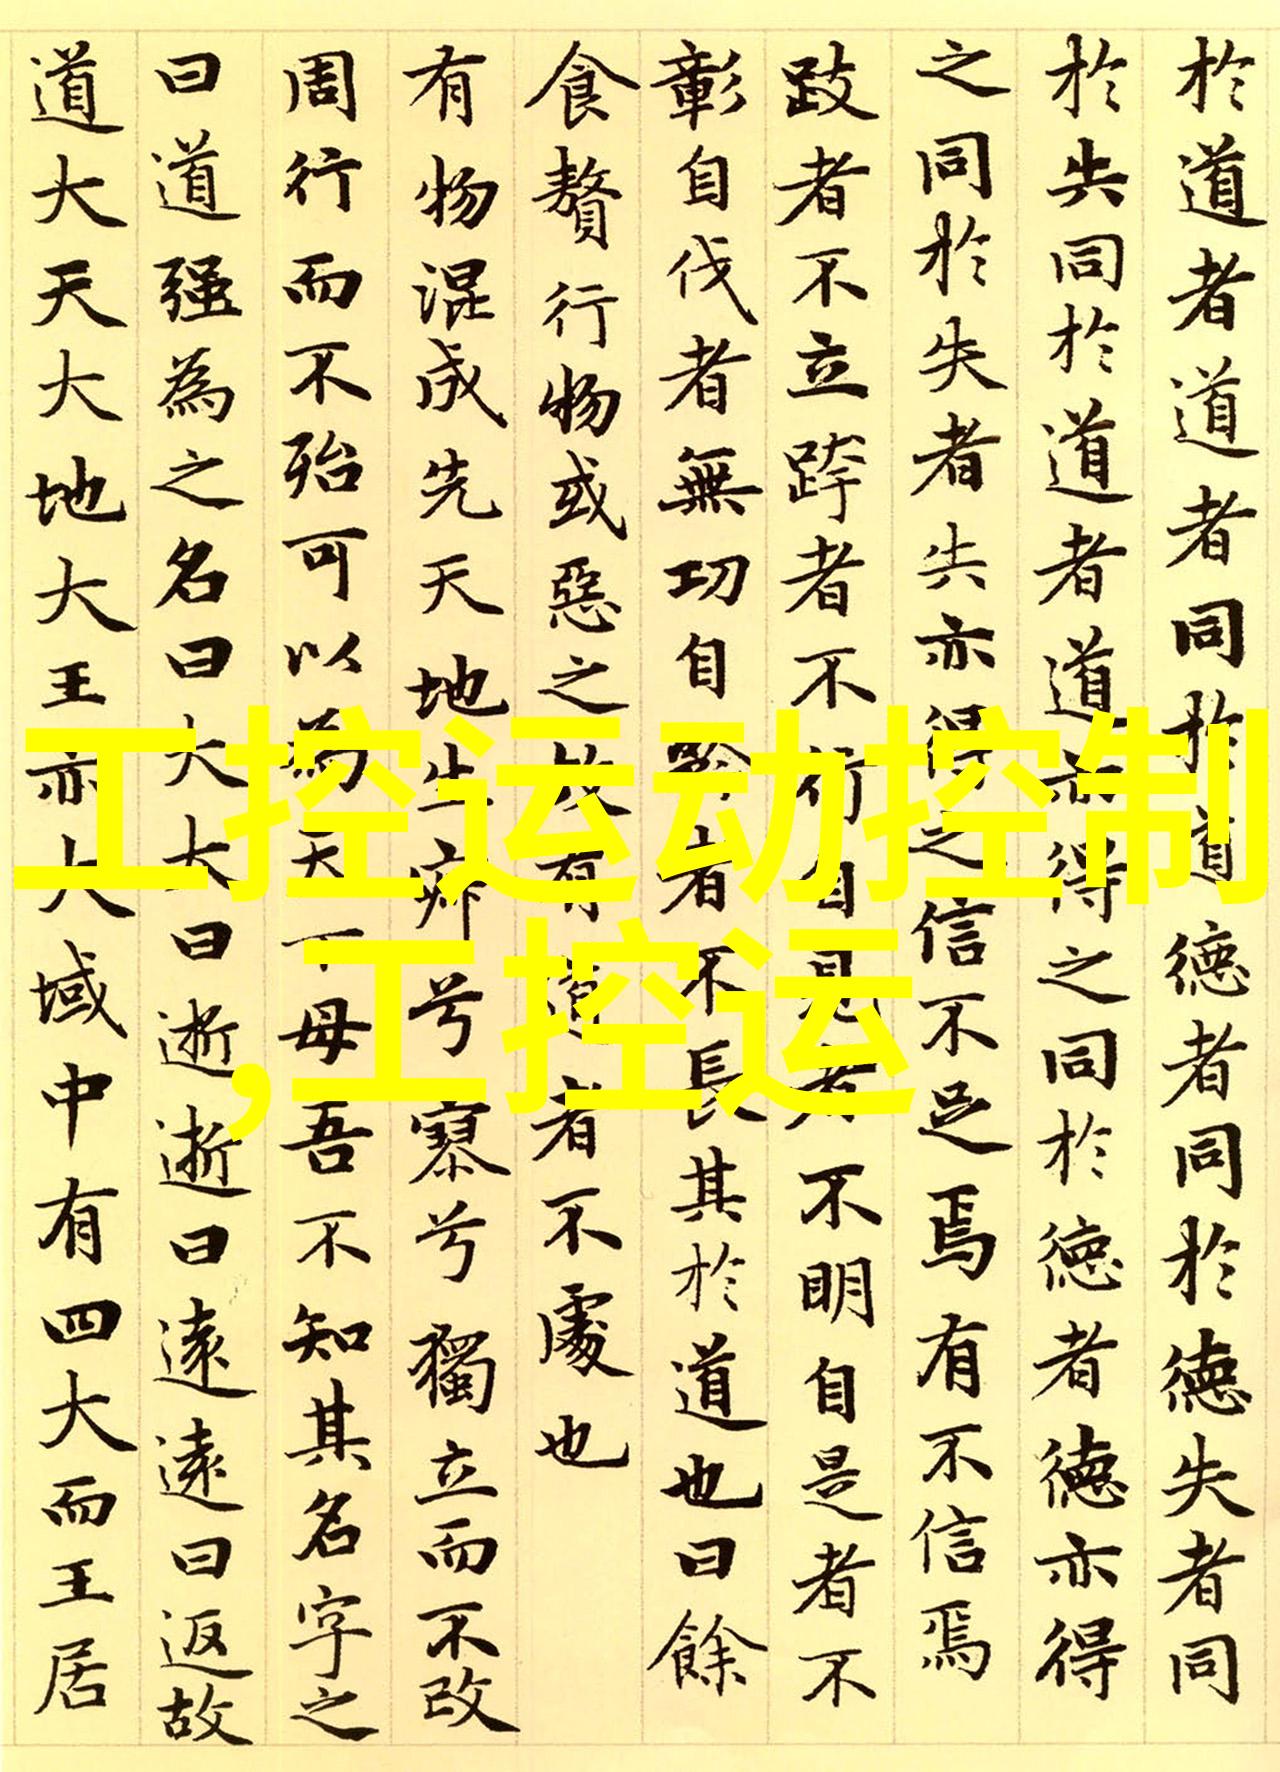 於道者道者同於道德者同於德失者同
於失同於道者道亦得之同於德者德亦得
之同於失者失亦得之信不足焉有不信焉
跂者不立跨者不行自見者不明自是者不
彰自伐者無功自矜者不長其於道也曰餘
食贅行物或惡之故有道者不處也
有物混成先天地生寂兮寥兮獨立而不改
周行而不殆可以為天下母吾不知其名字之
曰道强為之名曰大大曰逝逝曰遠遠曰返故
道大天大地大王亦大域中有四大而王居
工控运动控制
,工控运